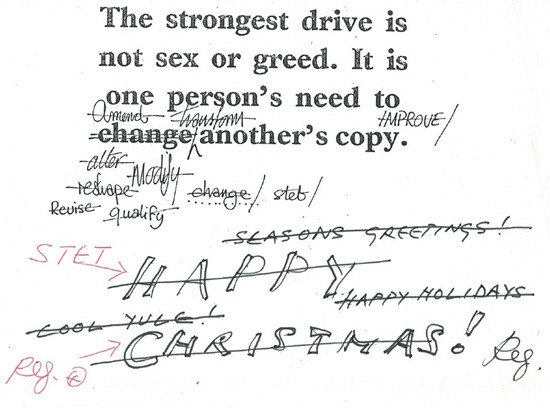 The strongest drive is
not sex or greed. It is
one person's need to
Amend transform IMPROVE/
change/another's copy.
alter Modify
reshape change/ stet/
Revise qualify
SEASONS GREETINGS!
STET HAPPY
HAPPY HOLIDAYS
COOL YULE!
CHRISTMAS! Reg.
Reg.